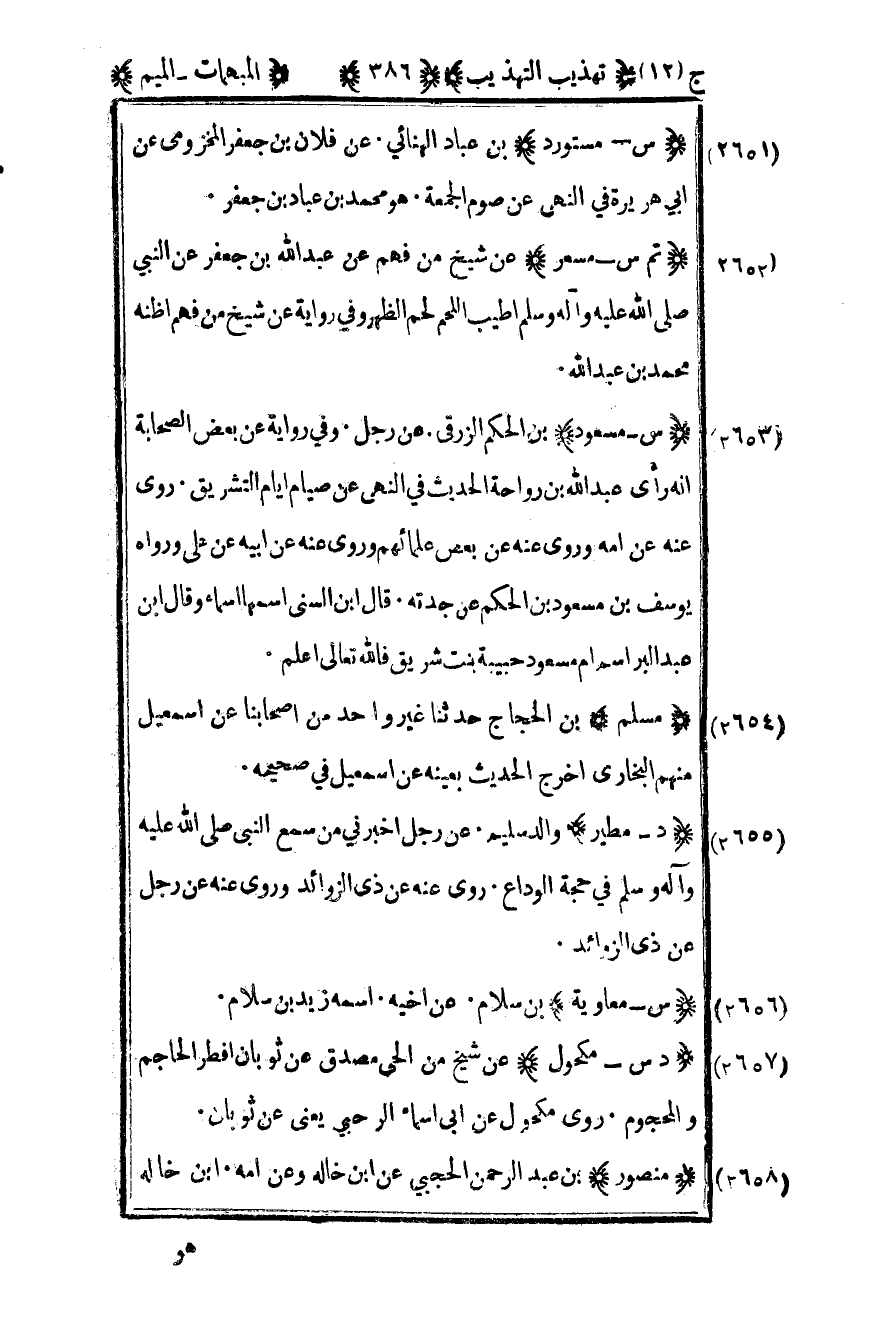 ج (١٢) ﴿ تهذيب التهذيب ﴾ ﴿ ٣٨٦ ﴾ ﴿ المبهمات - الميم ﴾
(٢٦٥١) ﴿ س – مستورد ﴾ بن عباد الهنائي . عن فلان بن جعفر المخزومى عن
ابي هريرة في النهى عن صوم الجمعة . هو محمد بن عباد بن جعفر .
(٢٦٥٢) ﴿ تم س – مسعر ﴾ عن شيخ من فهم عن عبد الله بن جعفر عن النبي
صلى الله عليه وآله وسلم اطيب اللحم لحم الظهر وفي رواية عن شيخ من فهم اظنه
محمد بن عبد الله .
(٢٦٥٣) ﴿ س – مسعود ﴾ بن الحكم الزرقى . عن رجل . وفي رواية عن بعض الصحابة
انه رأى عبد الله بن رواحة الحديث في النهى عن صيام ايام التشريق . روى
عنه عن امه وروى عنه عن بعض علمائهم وروى عنه عن ابيه عن على ورواه
يوسف بن مسعود بن الحكم عن جدته . قال ابن السنى اسمها اسماء وقال ابن
عبد البر اسم ام مسعود حبيبة بنت شريق فالله تعالى اعلم .
(٢٦٥٤) ﴿ مسلم ﴾ بن الحجاج حدثنا غير واحد من اصحابنا عن اسمعيل
منهم البخارى اخرج الحديث بعينه عن اسمعيل في صحيحه .
(٢٦٥٥) ﴿ د – مطير ﴾ والد سليم . عن رجل اخبرني من سمع النبى صلى الله عليه
وآله وسلم في حجة الوداع . روى عنه عن ذى الزوائد وروى عنه عن رجل
عن ذى الزوائد .
(٢٦٥٦) ﴿ س – معاوية ﴾ بن سلام . عن اخيه . اسمه زيد بن سلام .
(٢٦٥٧) ﴿ د س – مكحول ﴾ عن شيخ من الحي مصدق عن ثوبان افطر الحاجم
والمحجوم . روى مكحول عن ابى اسماء الرحبي يعنى عن ثوبان .
(٢٦٥٨) ﴿ منصور ﴾ بن عبد الرحمن الحجبي عن ابن خاله وعن امه . ابن خاله
هو